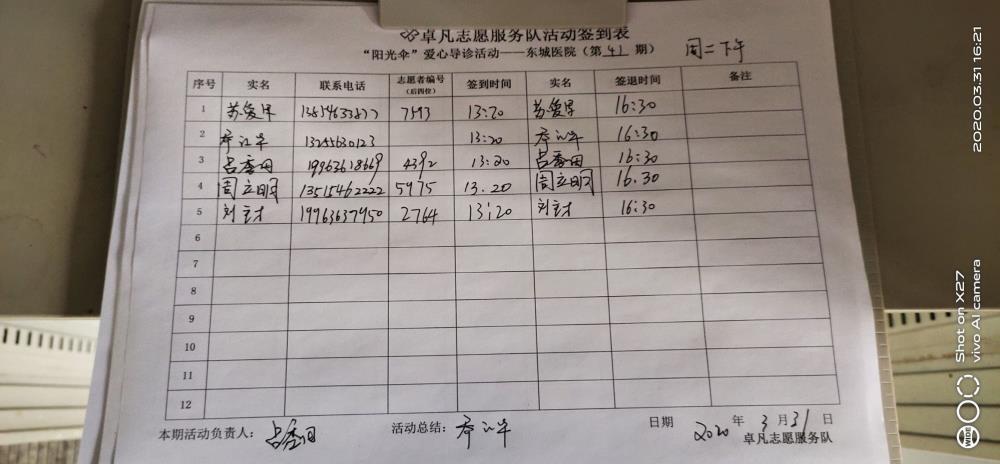 卓凡志愿服务队活动签到表
“阳光伞”爱心导诊活动——东城医院（第 41 期） 周二下午
序号 实名 联系电话 志愿者编号（后四位） 签到时间 实名 签退时间 备注
1 苏爱早 7593 13:20 苏爱早 16:30
2 13255630123 13:20 16:30
3 吕秀田 19963618669 4392 13:20 吕秀田 16:30
4 周立明 13515462222 5975 13.20 周立明 16.30
5 刘主才 19963637950 2764 13:20 刘主才 16:30
6
7
8
9
10
11
12
本期活动负责人： 吕秀田 活动总结： 日期 2020 年 3 月 31 日
卓凡志愿服务队
2020.03.31 16:21
Shot on X27
vivo AI camera